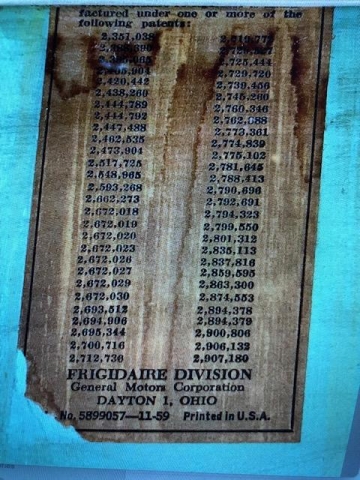 factured under one or more of the
following patents:
2,351,038
2,420,442
2,438,260
2,444,789
2,444,792
2,447,488
2,462,535
2,473,904
2,517,725
2,548,965
2,593,268
2,662,273
2,672,018
2,672,019
2,672,020
2,672,023
2,672,026
2,672,027
2,672,029
2,672,030
2,693,512
2,694,906
2,695,344
2,700,716
2,712,736
2,725,444
2,729,720
2,739,456
2,745,260
2,760,346
2,762,688
2,773,361
2,774,839
2,775,102
2,781,645
2,788,413
2,790,696
2,792,691
2,794,323
2,799,550
2,801,312
2,835,113
2,837,816
2,859,595
2,863,300
2,874,553
2,894,378
2,894,379
2,900,806
2,906,132
2,907,180
FRIGIDAIRE DIVISION
General Motors Corporation
DAYTON 1, OHIO
No. 5899057—11-59 Printed in U.S.A.